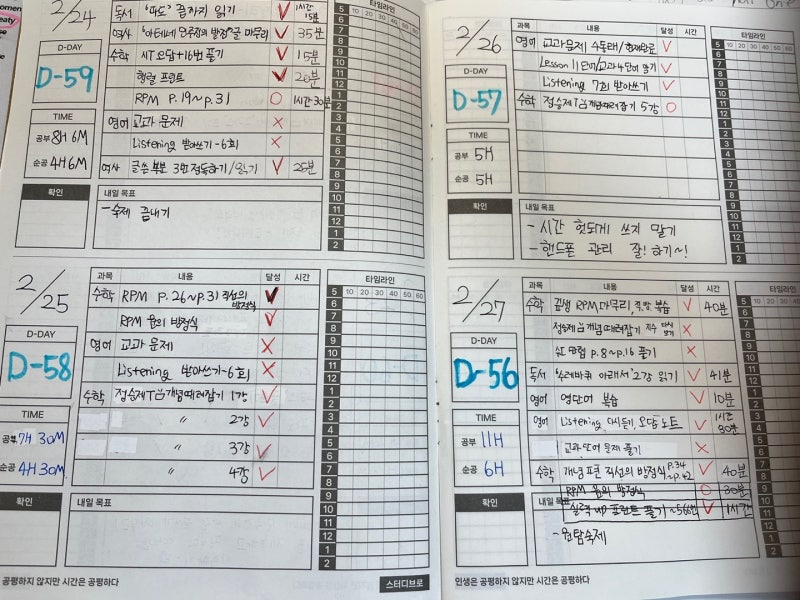 2/24
D-DAY
D-59
TIME
공부 8H 6M
순공 4H 6M
확인
독서 '파도' 끝까지 읽기 V 1시간 15분
역사 '아테네 민주정의 방향' 글 마무리 V 35분
수학 MT 오답+16번 풀기 V 15분
행렬 프린트 V 20분
RPM P.19~p.31 O 1시간 30분
영어 교과 문제 X
Listening 받아쓰기-6회 X
역사 글쓴 부분 3번 정독하기/읽기 V 25분
내일 목표
-숙제 끝내기
5 10 20 30 40 50 60
6
7
8
9
10
11
12
1
2
3
4
5
6
7
8
9
10
11
12
1
2
2/25
D-DAY
D-58
TIME
공부 7H 30M
순공 4H 30M
확인
과목 내용 달성 시간
수학 RPM p.26~p.31 직선의 방정식 V
RPM 원의 방정식 V
영어 교과 문제 X
Listening 받아쓰기-6회 X
수학 정승제 개념때려잡기 1강 V
" 2강 V
" 3강 V
" 4강 V
내일 목표
타임라인
5 10 20 30 40 50 60
6
7
8
9
10
11
12
1
2
3
4
5
6
7
8
9
10
11
12
1
2
공평하지 않지만 시간은 공평하다
스터디브로
2/26
D-DAY
D-57
TIME
공부 5H
순공 5H
확인
과목 내용 달성 시간
영어 교과문제 4독해/현재완료 V
Lesson 11단어/교과4단어 외우기 V
Listening 7회 받아쓰기 V
수학 정승제 개념때려잡기 5강 O
내일 목표
- 시간 헛되게 쓰지 말기
- 핸드폰 관리 잘! 하기~!
타임라인
5 10 20 30 40 50 60
6
7
8
9
10
11
12
1
2
3
4
5
6
7
8
9
10
11
12
1
2
2/27
D-DAY
D-56
TIME
공부 11H
순공 6H
확인
과목 내용 달성 시간
수학 RPM 마무리, 복습 V 40분
정승제 개념때려잡기 다시 보기 X
행렬 p.8~p.16 풀기 X
독서 '수레바퀴 아래서' 2강 읽기 V 41분
영어 영단어 복습 V 10분
영어 Listening 다시듣기, 오답노트 V 1시간 30분
교과 단어 문제 풀기 X
수학 개념 직선의 방정식 p.34~p.42 V 40분
RPM 원의 방정식 O 30분
실력 up 프린트 풀기 ~56번 V 1시간
내일 목표
-원탐숙제
타임라인
5 10 20 30 40 50 60
6
7
8
9
10
11
12
1
2
3
4
5
6
7
8
9
10
11
12
1
2
인생은 공평하지 않지만 시간은 공평하다